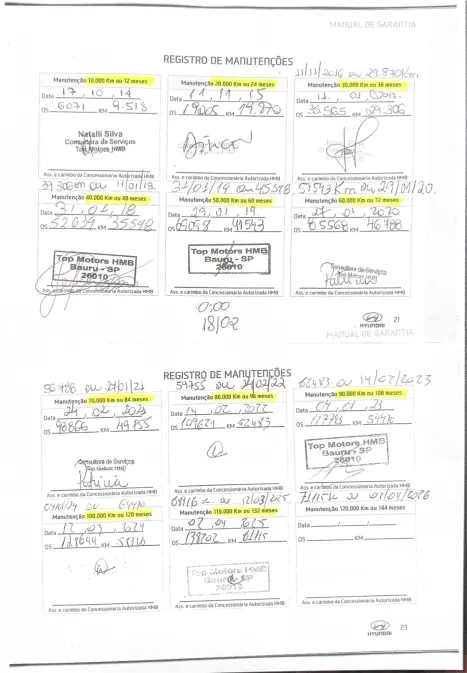 MANUAL DE GARANTIA
REGISTRO DE MANUTENÇÕES
11/11/2016 ou 29.870Km
Manutenção 10.000 Km ou 12 meses
Data 17, 10, 14
OS 6071 KM 9.518
Natalli Silva
Consultora de Serviços
Top Motors HMB
Ass. e carimbo da Concessionária Autorizada HMB
Manutenção 20.000 Km ou 24 meses
Data 11, 11, 15
OS KM 19.870
Ass. e carimbo da Concessionária Autorizada HMB
Manutenção 30.000 Km ou 36 meses
Data 11, 01, 2017
OS 35.565 KM 29.306
Ass. e carimbo da Concessionária Autorizada HMB
39.306km ou 11/01/18.
Manutenção 40.000 Km ou 48 meses
Data 31, 01, 18
OS 52.679 KM 35598
Top Motors HMB
Bauru - SP
26010
Ass. e carimbo da Concessionária Autorizada HMB
31/01/19 ou 45598
Manutenção 50.000 Km ou 60 meses
Data 29, 01, 19
OS 69098 KM 41543
Top Motors HMB
Bauru - SP
26010
Ass. e carimbo da Concessionária Autorizada HMB
51543Km ou 29/01/20.
Manutenção 60.000 Km ou 72 meses
Data 27, 01, 2020
OS 85568 KM 46788
Consultora de Serviços
Top Motors HMB
Patricia
Ass. e carimbo da Concessionária Autorizada HMB
10:00
18/02
HYUNDAI
21
MANUAL DE GARANTIA
REGISTRO DE MANUTENÇÕES
56788 ou 27/01/21
Manutenção 70.000 Km ou 84 meses
Data 24, 02, 2021
OS 98866 KM 49755
Consultora de Serviços
Top Motors HMB
Patricia
Ass. e carimbo da Concessionária Autorizada HMB
59755 ou 24/02/22
Manutenção 80.000 Km ou 96 meses
Data 14, 02, 2022
OS 109624 KM 52483
Ass. e carimbo da Concessionária Autorizada HMB
62483 ou 14/02/2023
Manutenção 90.000 Km ou 108 meses
Data 04, 01, 23
OS KM 54470
Top Motors HMB
Bauru - SP
26010
Ass. e carimbo da Concessionária Autorizada HMB
04/01/24 ou 64470
Manutenção 100.000 Km ou 120 meses
Data 12, 03, 2024
OS 128644 KM 58116
Ass. e carimbo da Concessionária Autorizada HMB
68116 K ou 12/03/2025
Manutenção 110.000 Km ou 132 meses
Data 02, 04, 2025
OS 138202 KM 61115
Top Motors HMB
Bauru - SP
26010
Ass. e carimbo da Concessionária Autorizada HMB
71115 K ou 02/04/2026
Manutenção 120.000 Km ou 144 meses
Data
OS KM
Ass. e carimbo da Concessionária Autorizada HMB
HYUNDAI
23